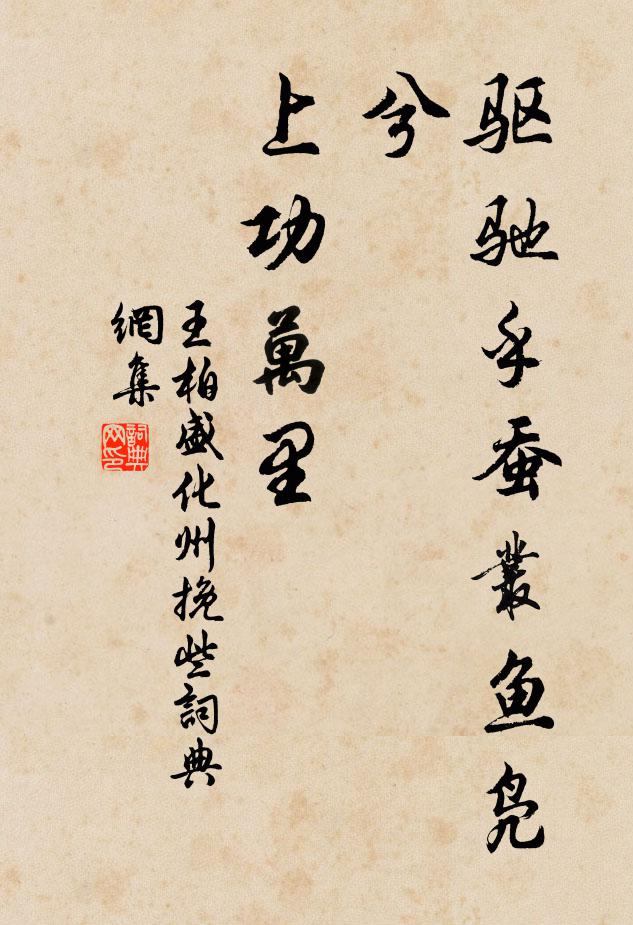 驱驰乎蚕叢鱼凫
兮
上功萬里
王柏盛化州挽些詞典
網集
詞典
网印